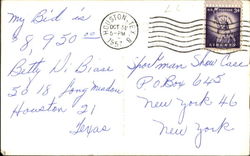 My Bid is
8,950.00
Betty Di Biase
5018 Long Meadow
Houston 21
Texas
HOUSTON, TEX.
OCT 18
6-PM
1957
LIBERTY
Sportsman Show Case
P.O Box 645
New York 46
New York